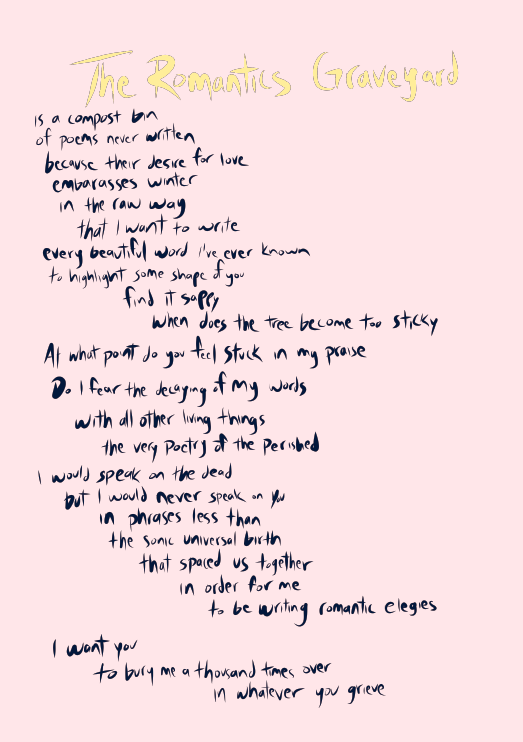 The Romantics Graveyard
is a compost bin
of poems never written
because their desire for love
embarasses winter
in the raw way
that I want to write
every beautiful word i've ever known
to highlight some shape of you
find it sappy
when does the tree become too sticky
At what point do you feel stuck in my praise
Do I fear the decaying of my words
with all other living things
the very poetry of the perished
I would speak on the dead
but I would never speak on you
in phrases less than
the sonic universal birth
that spaced us together
in order for me
to be writing romantic elegies
I want you
to bury me a thousand times over
in whatever you grieve